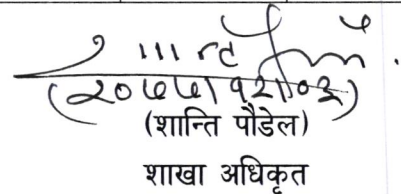 (२०७७।१२।०३)
(शान्ति पौडेल)
शाखा अधिकृत